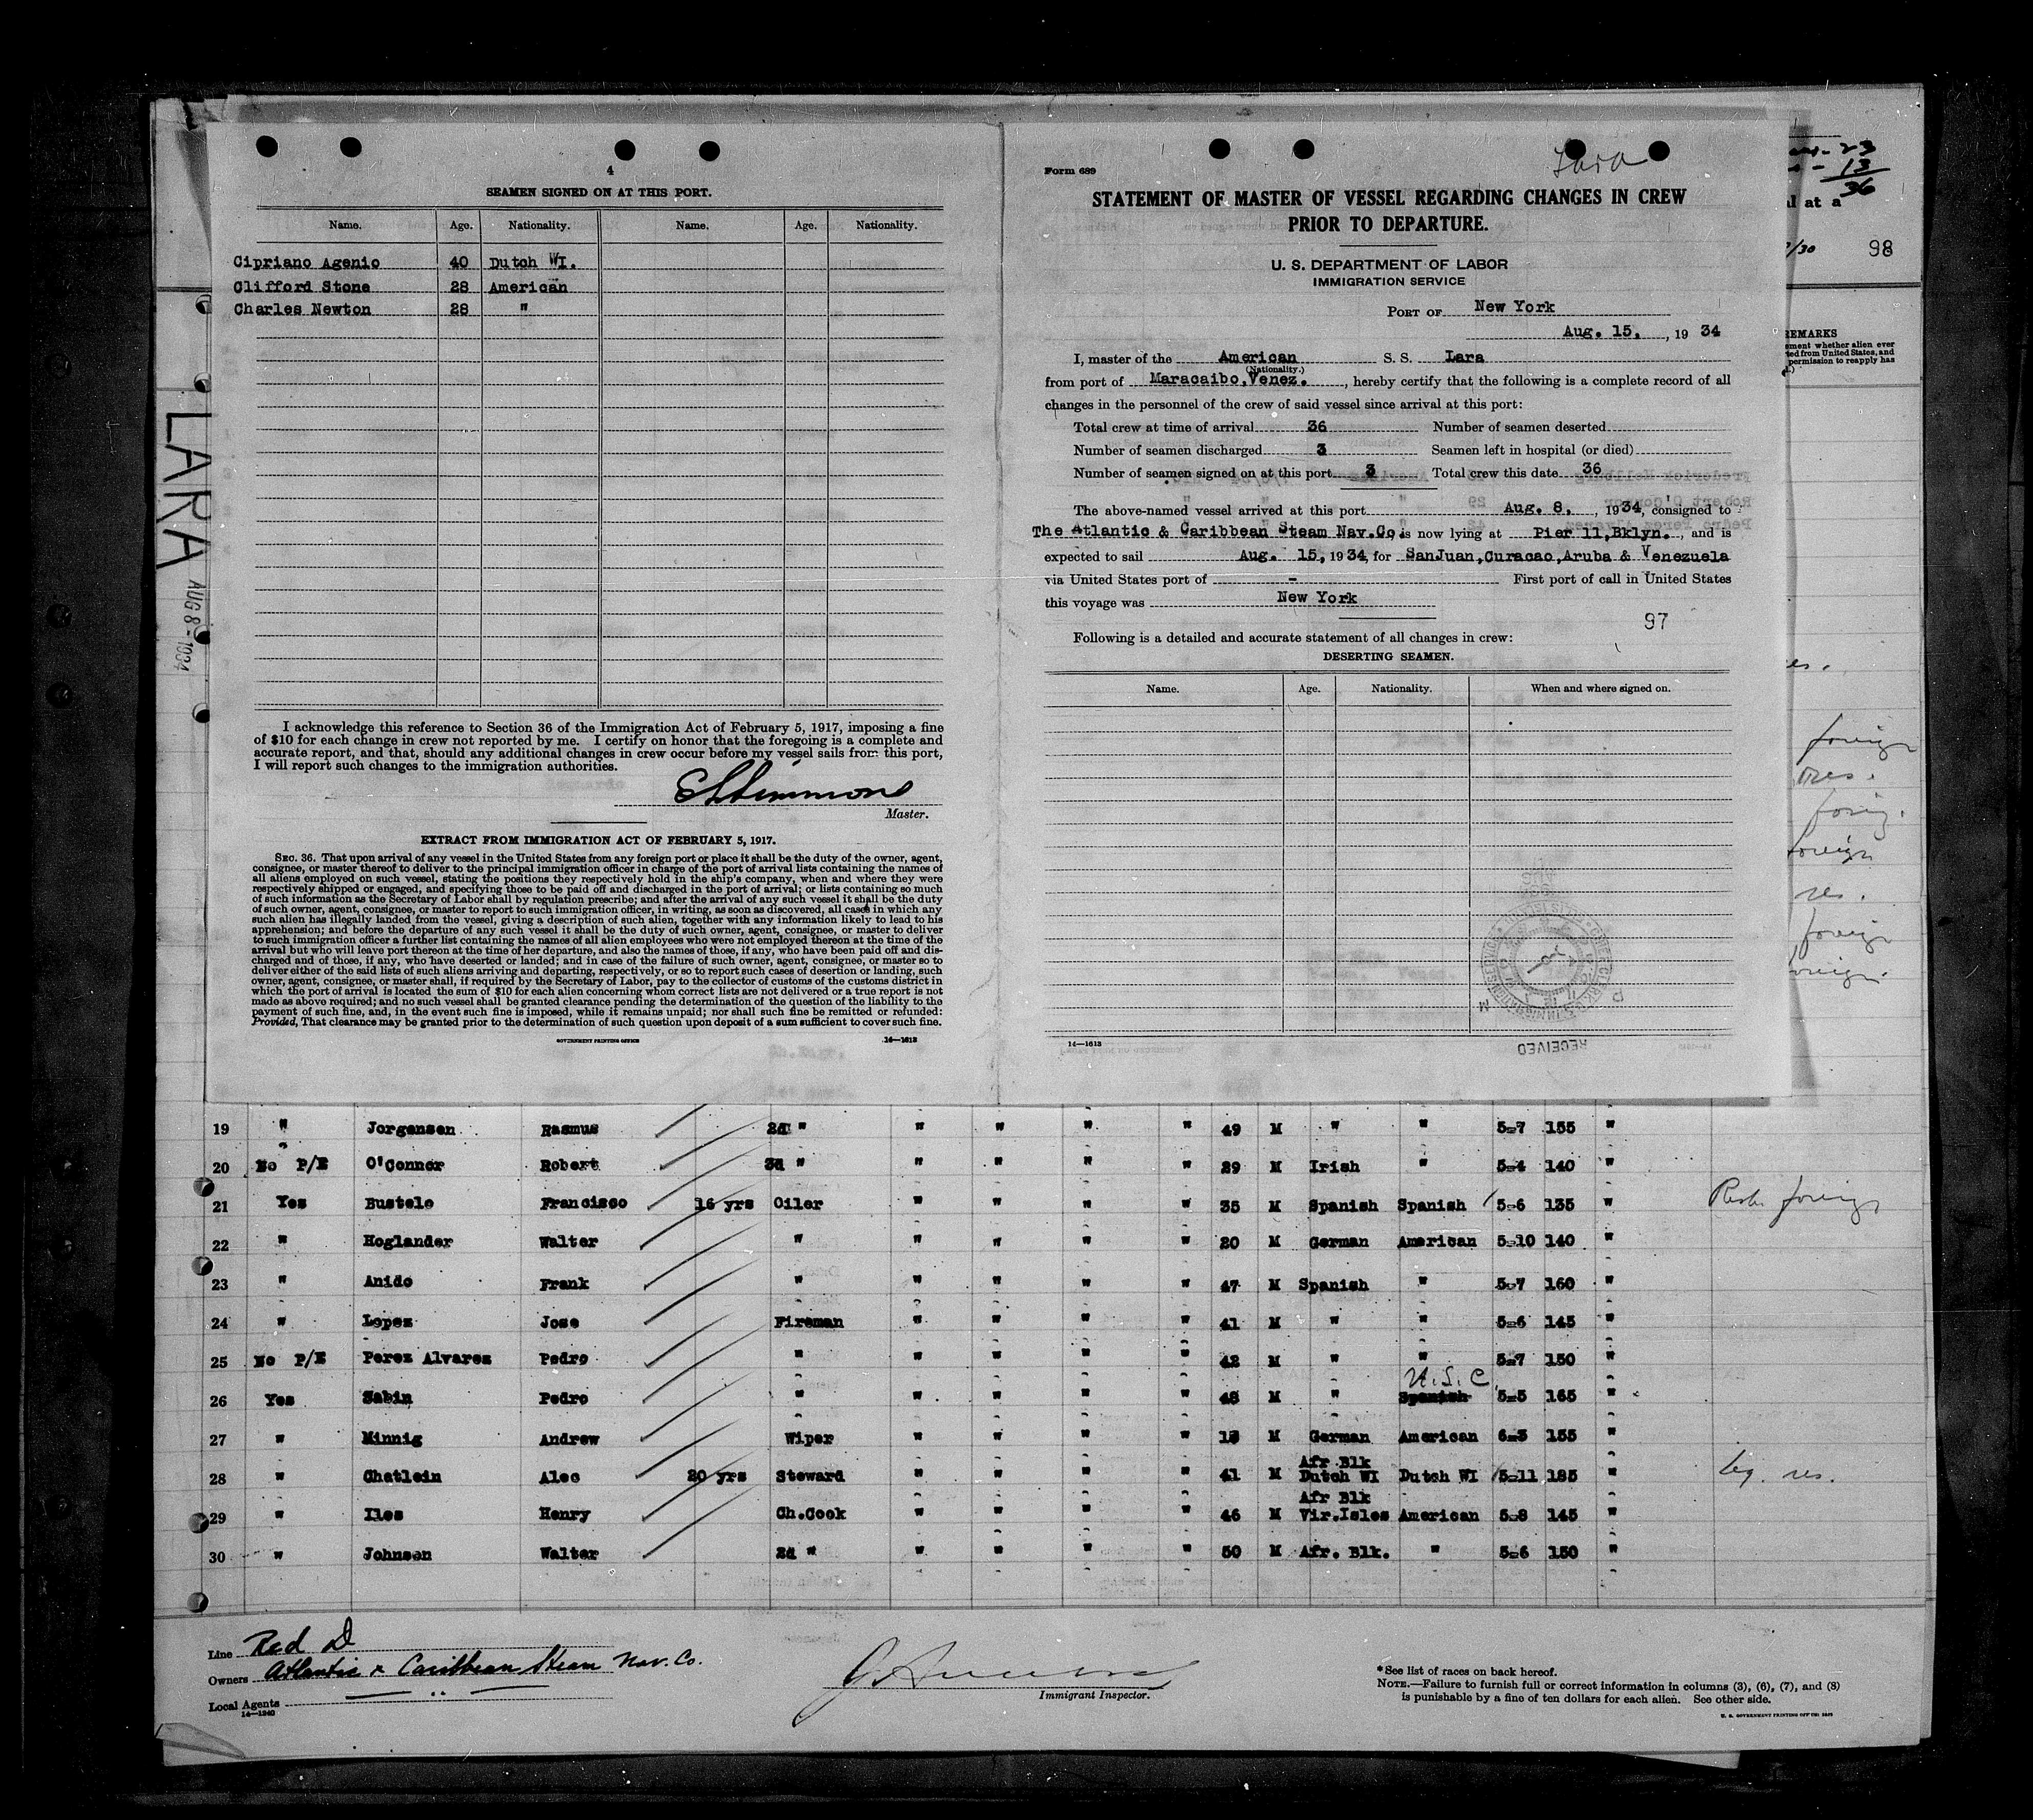 4
SEAMEN SIGNED ON AT THIS PORT.
Name. Age. Nationality. Name. Age. Nationality.
Cipriano Agenio 40 Dutch WI.
Clifford Stone 28 American
Charles Newton 28 "
I acknowledge this reference to Section 36 of the Immigration Act of February 5, 1917, imposing a fine
of $10 for each change in crew not reported by me. I certify on honor that the foregoing is a complete and
accurate report, and that, should any additional changes in crew occur before my vessel sails from this port,
I will report such changes to the immigration authorities.
Master.
EXTRACT FROM IMMIGRATION ACT OF FEBRUARY 5, 1917.
SEC. 36. That upon arrival of any vessel in the United States from any foreign port or place it shall be the duty of the owner, agent,
consignee, or master thereof to deliver to the principal immigration officer in charge of the port of arrival lists containing the names of
all aliens employed on such vessel, stating the positions they respectively hold in the ship's company, when and where they were
respectively shipped or engaged, and specifying those to be paid off and discharged in the port of arrival; or lists containing so much
of such information as the Secretary of Labor shall by regulation prescribe; and after the arrival of any such vessel it shall be the duty
of such owner, agent, consignee, or master to report to such immigration officer, in writing, as soon as discovered, all cases in which any
such alien has illegally landed from the vessel, giving a description of such alien, together with any information likely to lead to his
apprehension; and before the departure of any such vessel it shall be the duty of such owner, agent, consignee, or master to deliver
to such immigration officer a further list containing the names of all alien employees who were not employed thereon at the time of the
arrival but who will leave port thereon at the time of her departure, and also the names of those, if any, who have been paid off and dis-
charged and of those, if any, who have deserted or landed; and in case of the failure of such owner, agent, consignee, or master so to
deliver either of the said lists of such aliens arriving and departing, respectively, or so to report such cases of desertion or landing, such
owner, agent, consignee, or master shall, if required by the Secretary of Labor, pay to the collector of customs of the customs district in
which the port of arrival is located the sum of $10 for each alien concerning whom correct lists are not delivered or a true report is not
made as above required; and no such vessel shall be granted clearance pending the determination of the question of the liability to the
payment of such fine, and, in the event such fine is imposed, while it remains unpaid; nor shall such fine be remitted or refunded:
Provided, That clearance may be granted prior to the determination of such question upon deposit of a sum sufficient to cover such fine.
GOVERNMENT PRINTING OFFICE 14—1613
Lara
Form 689
STATEMENT OF MASTER OF VESSEL REGARDING CHANGES IN CREW
PRIOR TO DEPARTURE.
U. S. DEPARTMENT OF LABOR
IMMIGRATION SERVICE
PORT OF New York
Aug. 15, , 19 34
I, master of the American S. S. Lara
(Nationality.)
from port of Maracaibo,Venez. , hereby certify that the following is a complete record of all
changes in the personnel of the crew of said vessel since arrival at this port:
Total crew at time of arrival 36 Number of seamen deserted
Number of seamen discharged 3 Seamen left in hospital (or died)
Number of seamen signed on at this port 3 Total crew this date 36
The above-named vessel arrived at this port Aug. 8, , 1934, consigned to
The Atlantic & Caribbean Steam Nav.Co. is now lying at Pier 11,Bklyn. , and is
expected to sail Aug. 15, 1934, for SanJuan,Curacao,Aruba & Venezuela
via United States port of - First port of call in United States
this voyage was New York
97
Following is a detailed and accurate statement of all changes in crew:
DESERTING SEAMEN.
Name. Age. Nationality. When and where signed on.
RECEIVED
14—1613
23
13
36
al at a
98
REMARKS
LARA
AUG 8 - 1934
foreign
res.
foreign
foreign
res.
foreign
foreign.
19 " Jorgensen Rasmus 2d " " " " " 49 M " " 5-7 155 "
20 No P/E O'Connor Robert 3d " " " " " 29 M Irish " 5-4 140 "
21 Yes Bustelo Francisco 16 yrs Oiler " " " " 35 M Spanish Spanish 5-6 135 " foreign
22 " Hoglander Walter " " " " " 20 M German American 5-10 140 "
23 " Anido Frank " " " " " 47 M Spanish " 5-7 160 "
24 " Lopez Jose Fireman " " " " 41 M " " 5-6 145 "
25 No P/E Perez Alvarez Pedro " " " " " 42 M " " 5-7 150 "
U.S.C.
26 Yes Sabin Pedro " " " " " 48 M " Spanish 5-5 165 "
27 " Minnig Andrew Wiper " " " " M German American 6-3 155 "
Afr Blk
28 " Chatlein Alec 20 yrs Steward " " " " 41 M Dutch WI Dutch WI 5-11 185 " leg. res.
Afr Blk
29 " Iles Henry Ch.Cook " " " " 46 M Vir.Isles American 5-8 145 "
30 " Johnson Walter 2d " " " " " 50 M Afr. Blk. " 5-6 150 "
Line Red D
Owners Atlantic & Caribbean Steam Nav. Co.
Local Agents " "
14—1240
Immigrant Inspector.
*See list of races on back hereof.
NOTE.—Failure to furnish full or correct information in columns (3), (6), (7), and (8)
is punishable by a fine of ten dollars for each alien. See other side.
U. S. GOVERNMENT PRINTING OFFICE